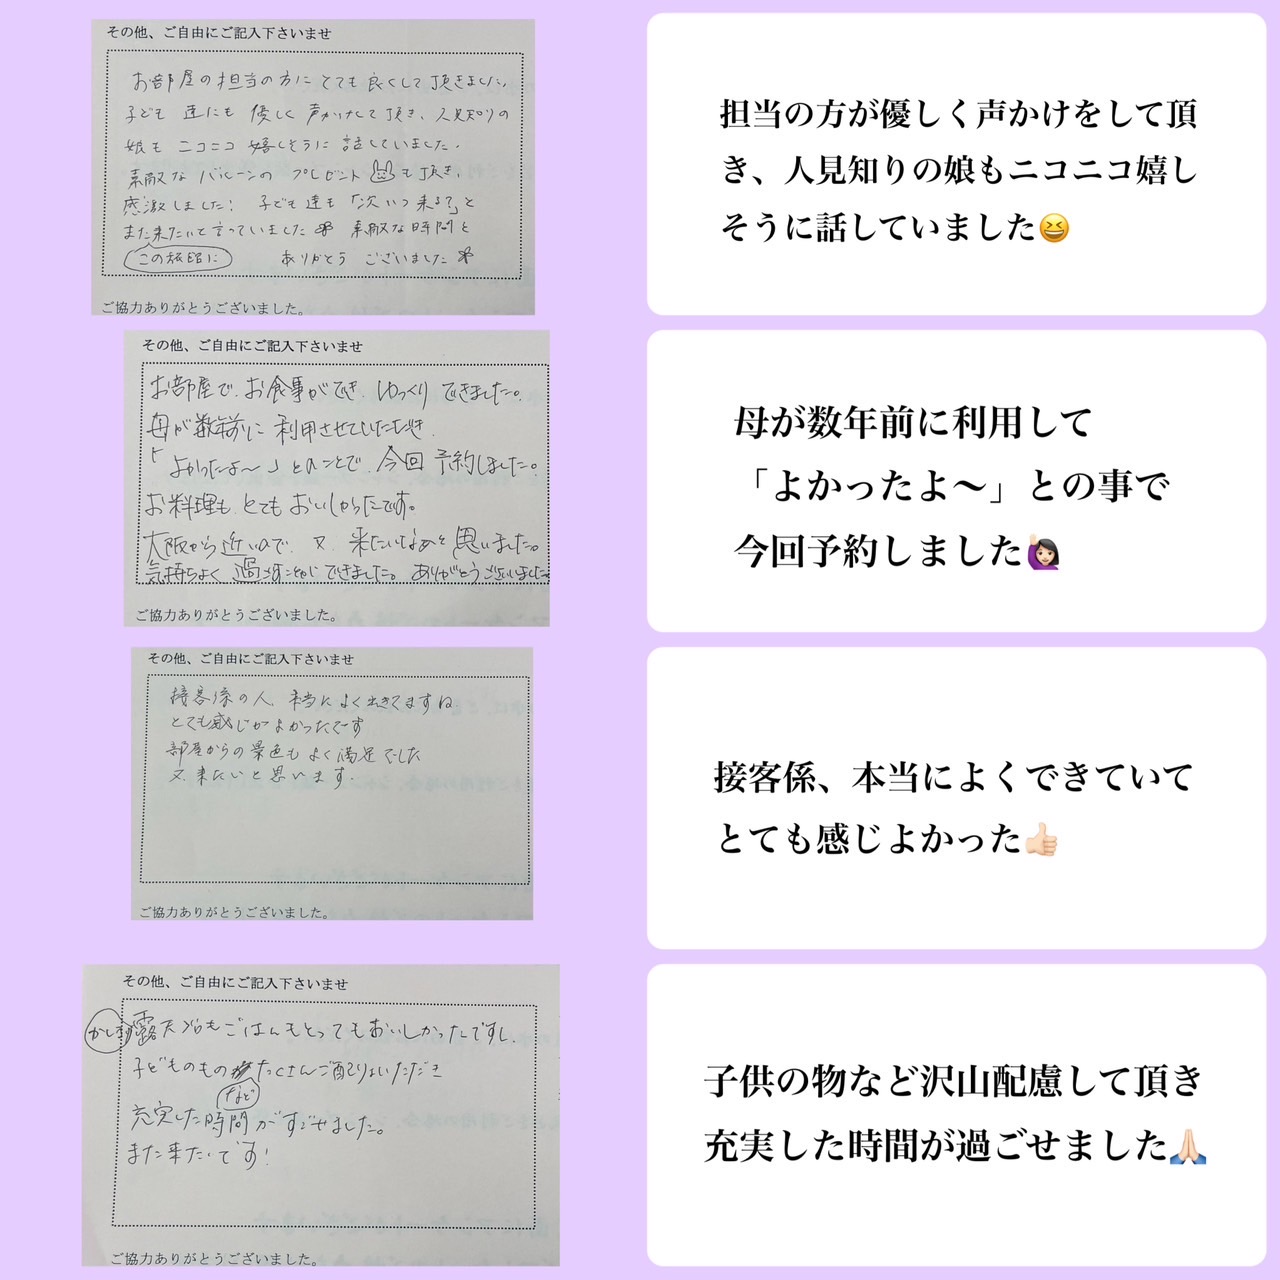 その他、ご自由にご記入下さいませ
お部屋の担当の方にとても良くして頂きました。
子ども達にも優しく声かけして頂き、人見知りの
娘もニコニコ嬉しそうに話していました。
素敵なバルーンのプレゼントも頂き、
感激しました! 子ども達も「次いつ来る?」と
また来たいと言っていました 素敵な時間を
この旅館に ありがとうございました
ご協力ありがとうございました。
担当の方が優しく声かけをして頂
き、人見知りの娘もニコニコ嬉し
そうに話していました😆
その他、ご自由にご記入下さいませ
お部屋で、お食事ができ、ゆっくりできました。
母が数年前に利用させていただき、
「よかったよ〜」とのことで、今回予約しました。
お料理も、とてもおいしかったです。
大阪から近いので、又、来たいなぁと思いました。
気持ちよく過ごすことができました。ありがとうございました
ご協力ありがとうございました。
母が数年前に利用して
「よかったよ〜」との事で
今回予約しました🙋🏻‍♀️
その他、ご自由にご記入下さいませ
接客係の人、本当によく出きてますね
とても感じがよかったです
部屋からの景色もよく満足でした
又、来たいと思います。
ご協力ありがとうございました。
接客係、本当によくできていて
とても感じよかった👍🏻
その他、ご自由にご記入下さいませ
かしきり露天風呂もごはんもとってもおいしかったですし、
子どものものなどたくさんご配りょいただき
充実した時間がすごせました。
また来たいです!
ご協力ありがとうございました。
子供の物など沢山配慮して頂き
充実した時間が過ごせました🙏🏻